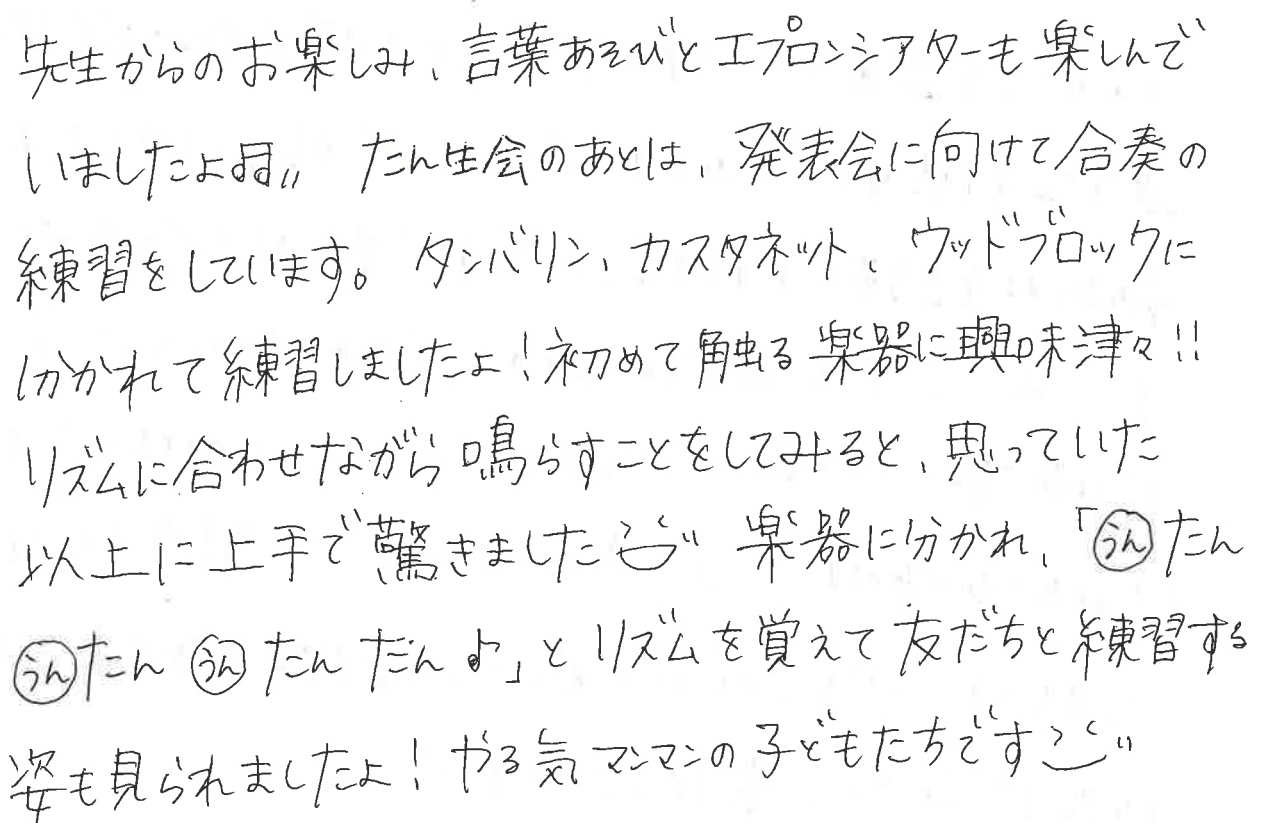 先生からのお楽しみ、言葉あそびとエプロンシアターも楽しんで
いましたよ♬〃 たん生会のあとは、発表会に向けて合奏の
練習をしています。タンバリン、カスタネット、ウッドブロックに
分かれて練習しましたよ！初めて触る楽器に興味津々!!
リズムに合わせながら鳴らすことをしてみると、思っていた
以上に上手で驚きました 楽器に分かれ、「うんたん
うんたん うんたん だん♪」とリズムを覚えて友だちと練習する
姿も見られましたよ！やる気マンマンの子どもたちです